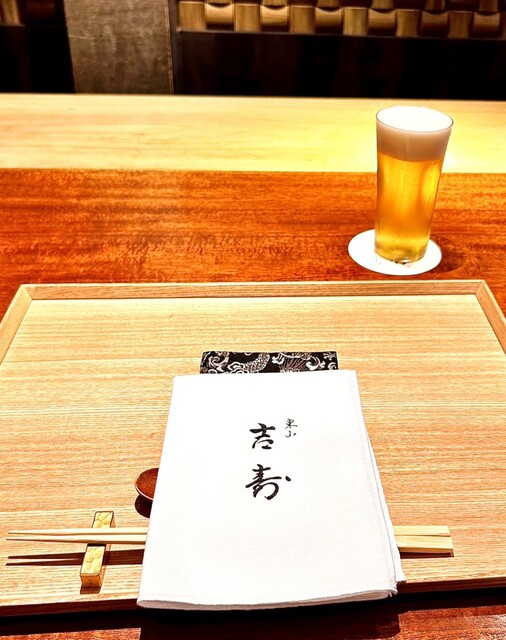 東山
吉寿